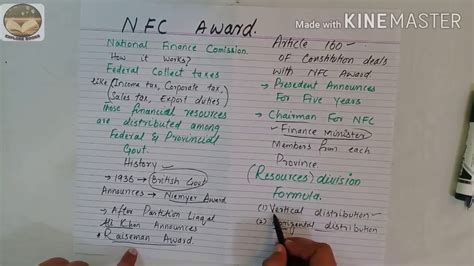 NFC Award.
Made with KINEMASTER
National Finance Comission.
How it works?
Federal Collect taxes
like (Income tax, Corporate tax,
Sales tax, Export duties)
those financial resources
are distributed among
Federal & Provincial
Govt.
History
→ 1936 → British Govt
Announces → Niemyer Award
→ After Partition Liaqat
Ali Khan Announces
Raiseman Award.
Article 160
OF Constitution deals
with NFC Award.
→ Presedent Announces
For Five years
→ Chairman For NFC
Finance minister
Members from each
Province.
(Resources) division
Formula.
(1) Vertical distribution
(2) Horizental distribution